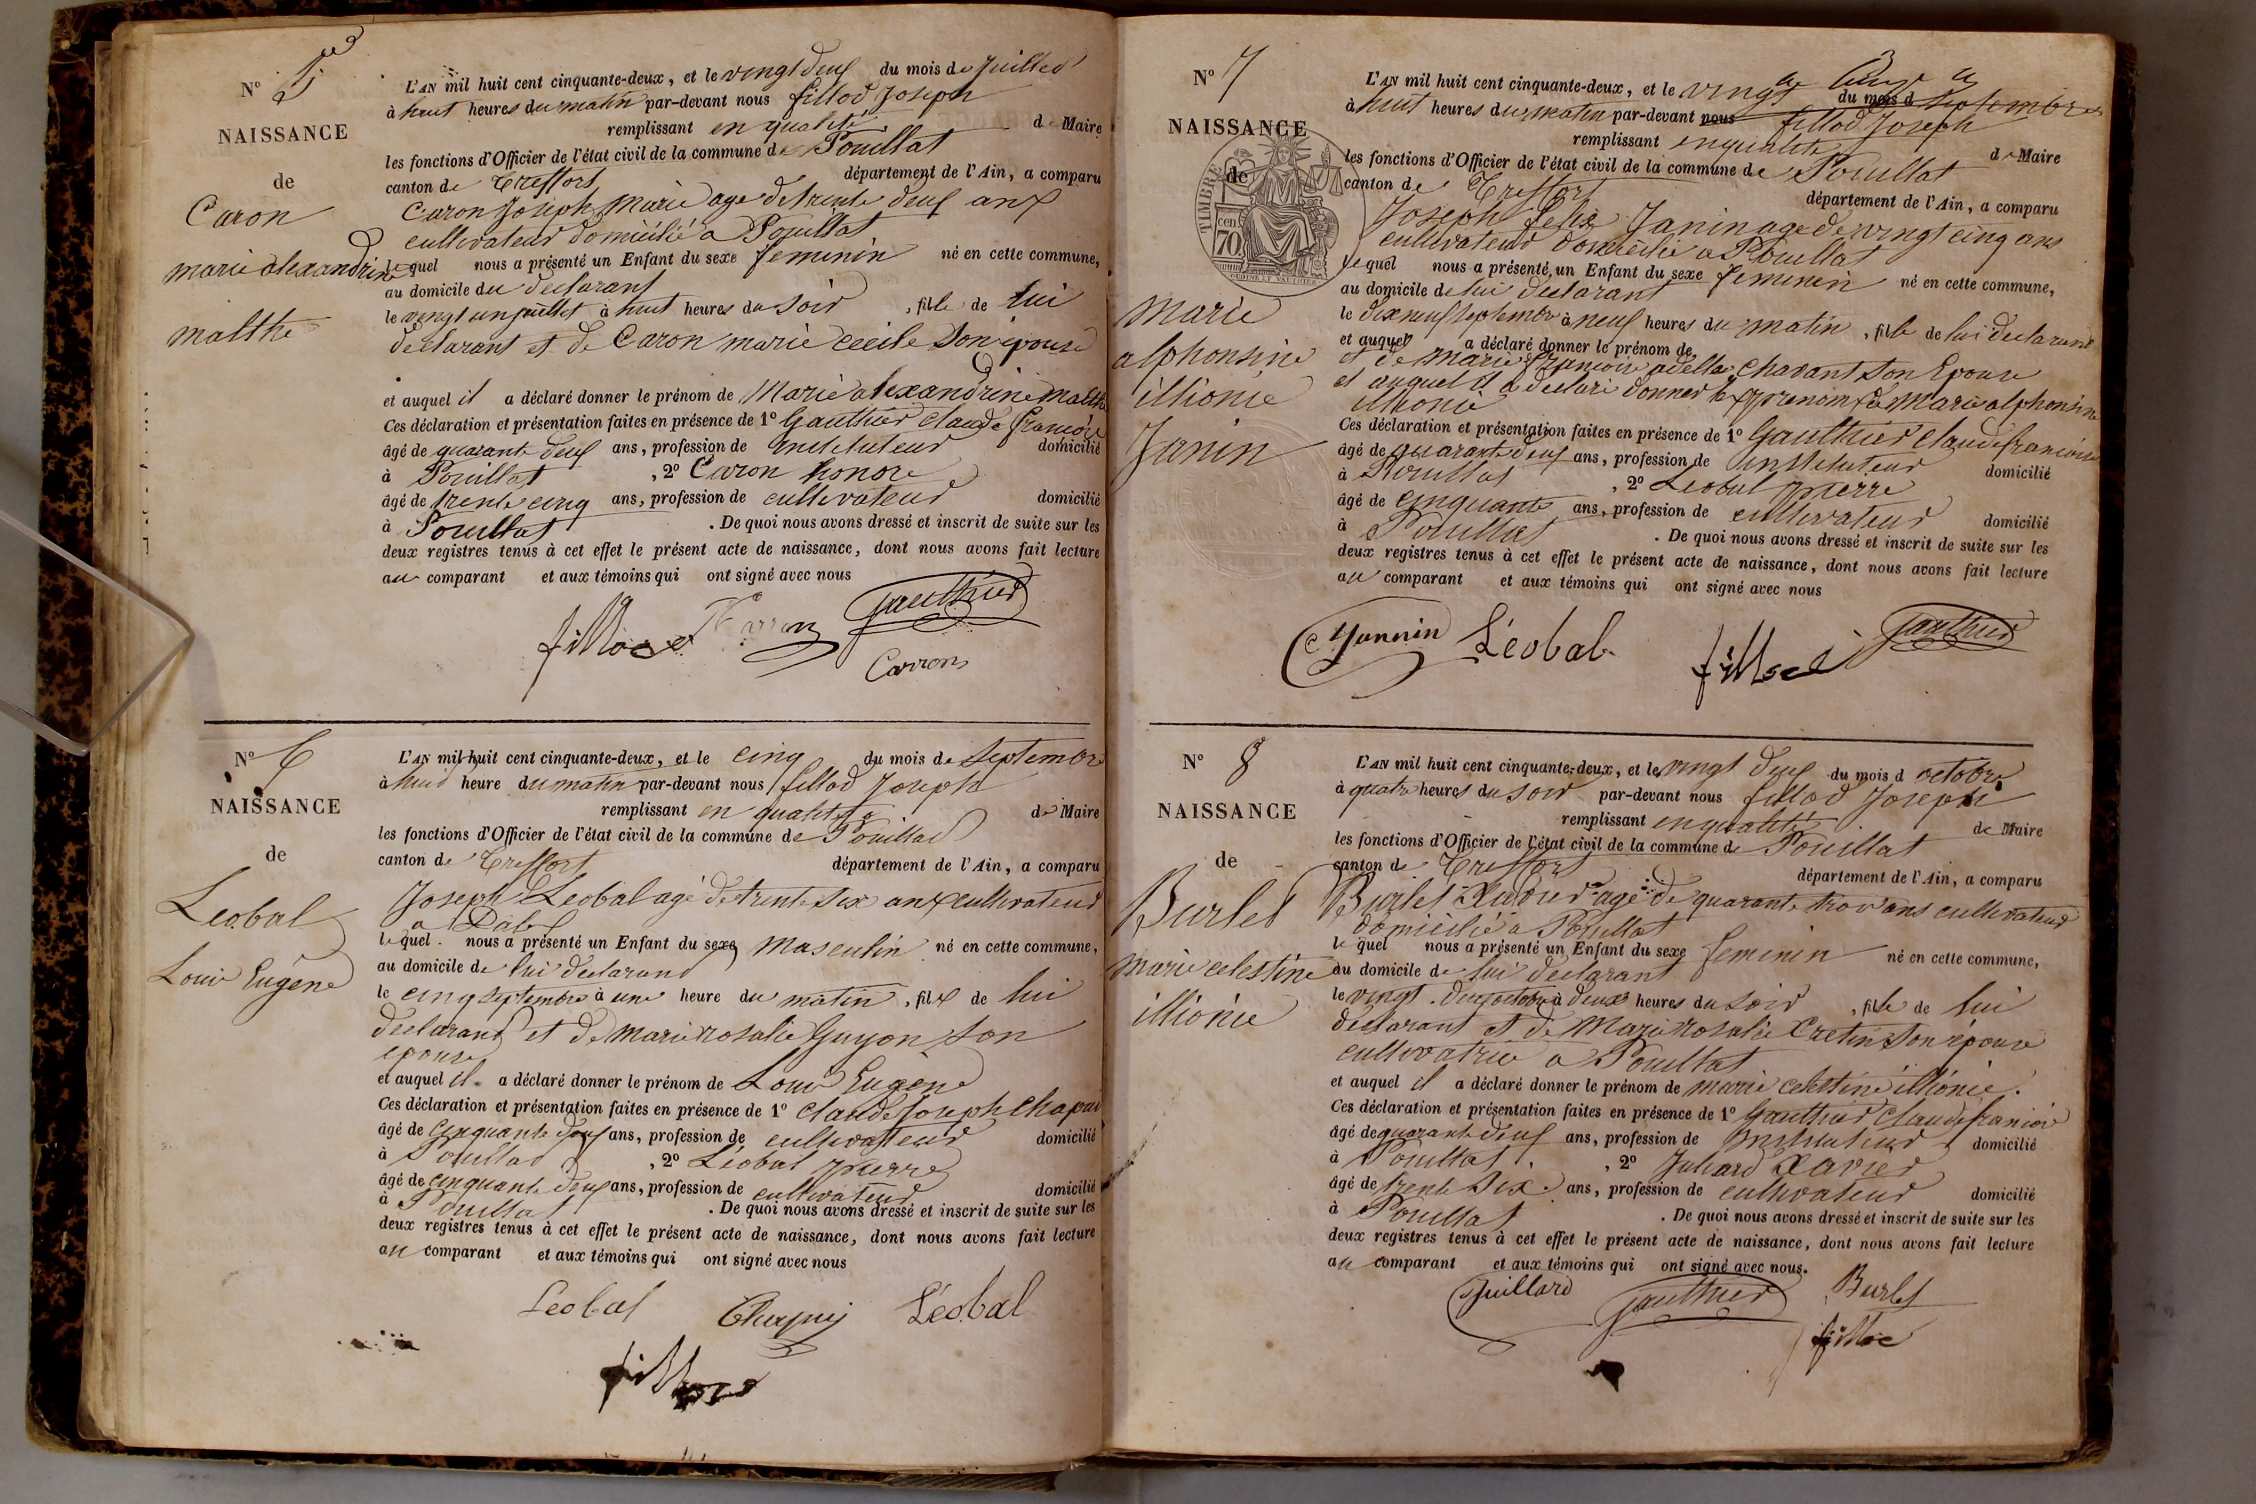 N° 5
NAISSANCE
de
Caron
marie alexandrine
malthe
L'AN mil huit cent cinquante-deux, et le vingt deux du mois de Juillet
à huit heures du matin par-devant nous fillod Joseph
remplissant en qualité de Maire
les fonctions d'Officier de l'état civil de la commune de Pouillat
canton de Treffort département de l'Ain, a comparu
Caron Joseph Marie age de trente deux anx
cultivateur domicilié a Pouillat
le quel nous a présenté un Enfant du sexe feminin né en cette commune,
au domicile du declarant
le vingt un juillet à huit heures du soir, fille de lui
declarant et de Caron marie cecile son epouse
et auquel il a déclaré donner le prénom de Marie alexandrine malthe
Ces déclaration et présentation faites en présence de 1° Gauthier Claude francois
âgé de quarante deux ans, profession de instituteur domicilié
à Pouillat, 2° Caron honore
âgé de trente cinq ans, profession de cultivateur domicilié
à Pouillat. De quoi nous avons dressé et inscrit de suite sur les
deux registres tenus à cet effet le présent acte de naissance, dont nous avons fait lecture
au comparant et aux témoins qui ont signé avec nous
fillod Carron Gauthier
Carron
N° 6
NAISSANCE
de
Leobal
Louis Eugène
L'AN mil huit cent cinquante-deux, et le cinq du mois de septembre
à huit heure du matin par-devant nous fillod Joseph
remplissant en qualité de Maire
les fonctions d'Officier de l'état civil de la commune de Pouillat
canton de Treffort département de l'Ain, a comparu
Joseph Leobal agé de trente six anx cultivateur
a
le quel nous a présenté un Enfant du sexe masculin né en cette commune,
au domicile de lui declarant
le cinq septembre à une heure du matin, fils de lui
declarant et de marie rosalie Guyon son
epouse
et auquel il a déclaré donner le prénom de Louis Eugène
Ces déclaration et présentation faites en présence de 1° Claude Joseph Chapuis
âgé de cinquante deux ans, profession de cultivateur domicilié
à Pouillat, 2° Léobal pierre
âgé de cinquante deux ans, profession de cultivateur domicilié
à Pouillat. De quoi nous avons dressé et inscrit de suite sur les
deux registres tenus à cet effet le présent acte de naissance, dont nous avons fait lecture
au comparant et aux témoins qui ont signé avec nous
Leobal Chapuis Léobal
fillod
N° 7
NAISSANCE
de
TIMBRE
cen
70
Marie
alphonsine
illionie
Janin
L'AN mil huit cent cinquante-deux, et le vingt du mois d septembre
à huit heures du matin par-devant nous fillod Joseph
remplissant en qualité de Maire
les fonctions d'Officier de l'état civil de la commune de Pouillat
canton de Treffort département de l'Ain, a comparu
Joseph felix Janin age de vingt cinq ans
cultivateur domicilié a Pouillat
le quel nous a présenté un Enfant du sexe feminin né en cette commune,
au domicile de lui declarant
le dix neuf septembre à neuf heures du matin, fille de lui declarant
et auquel a déclaré donner le prénom de
et de marie francoise adelle Chavant son Epouse
et auquel il a déclaré donner le prenom de Marie alphonsine
illionie
Ces déclaration et présentation faites en présence de 1° Gauthier Claude francois
âgé de quarante deux ans, profession de instituteur domicilié
à Pouillat, 2° Leobal pierre
âgé de cinquante ans, profession de cultivateur domicilié
à Pouillat. De quoi nous avons dressé et inscrit de suite sur les
deux registres tenus à cet effet le présent acte de naissance, dont nous avons fait lecture
au comparant et aux témoins qui ont signé avec nous
Yannin Léobal fillod Gauthier
N° 8
NAISSANCE
de
Burlet
marie celestine
illionie
L'AN mil huit cent cinquante-deux, et le vingt deux du mois d octobre
à quatre heures du soir par-devant nous fillod Joseph
remplissant en qualité de Maire
les fonctions d'Officier de l'état civil de la commune de Pouillat
canton de Treffort département de l'Ain, a comparu
Burlet agé de quarante trois ans cultivateur
domicilié a Pouillat
le quel nous a présenté un Enfant du sexe feminin né en cette commune,
au domicile de lui declarant
le vingt deux octobre à deux heures du soir, fille de lui
declarant et de Marie rosalie Cretin son épouse
cultivatrice a Pouillat
et auquel il a déclaré donner le prénom de marie celestine illionie.
Ces déclaration et présentation faites en présence de 1° Gauthier Claude francois
âgé de quarante deux ans, profession de instituteur domicilié
à Pouillat, 2° Juliard Xavier
âgé de trente six ans, profession de cultivateur domicilié
à Pouillat. De quoi nous avons dressé et inscrit de suite sur les
deux registres tenus à cet effet le présent acte de naissance, dont nous avons fait lecture
au comparant et aux témoins qui ont signé avec nous.
Juillard Gauthier Burlet
fillod